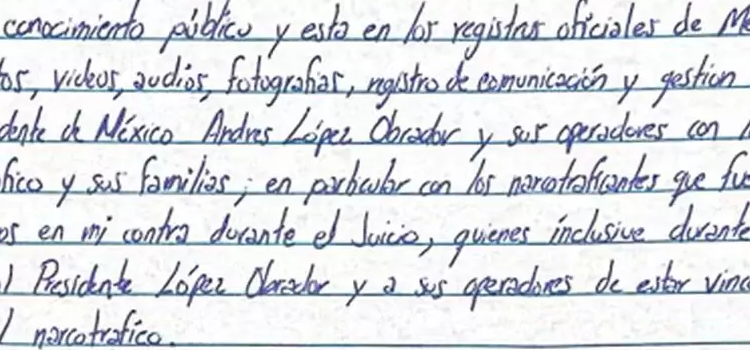 conocimiento público y esta en los registros oficiales de Mé
tos, videos, audios, fotografias, registro de comunicación y gestion
dente de México Andres López Obrador y sus operadores con
fico y sus familias; en particular con los narcotraficantes que fue
os en mi contra durante el Juicio, quienes inclusive durante
l Presidente López Obrador y a sus operadores de estar vinc
l narcotrafico.